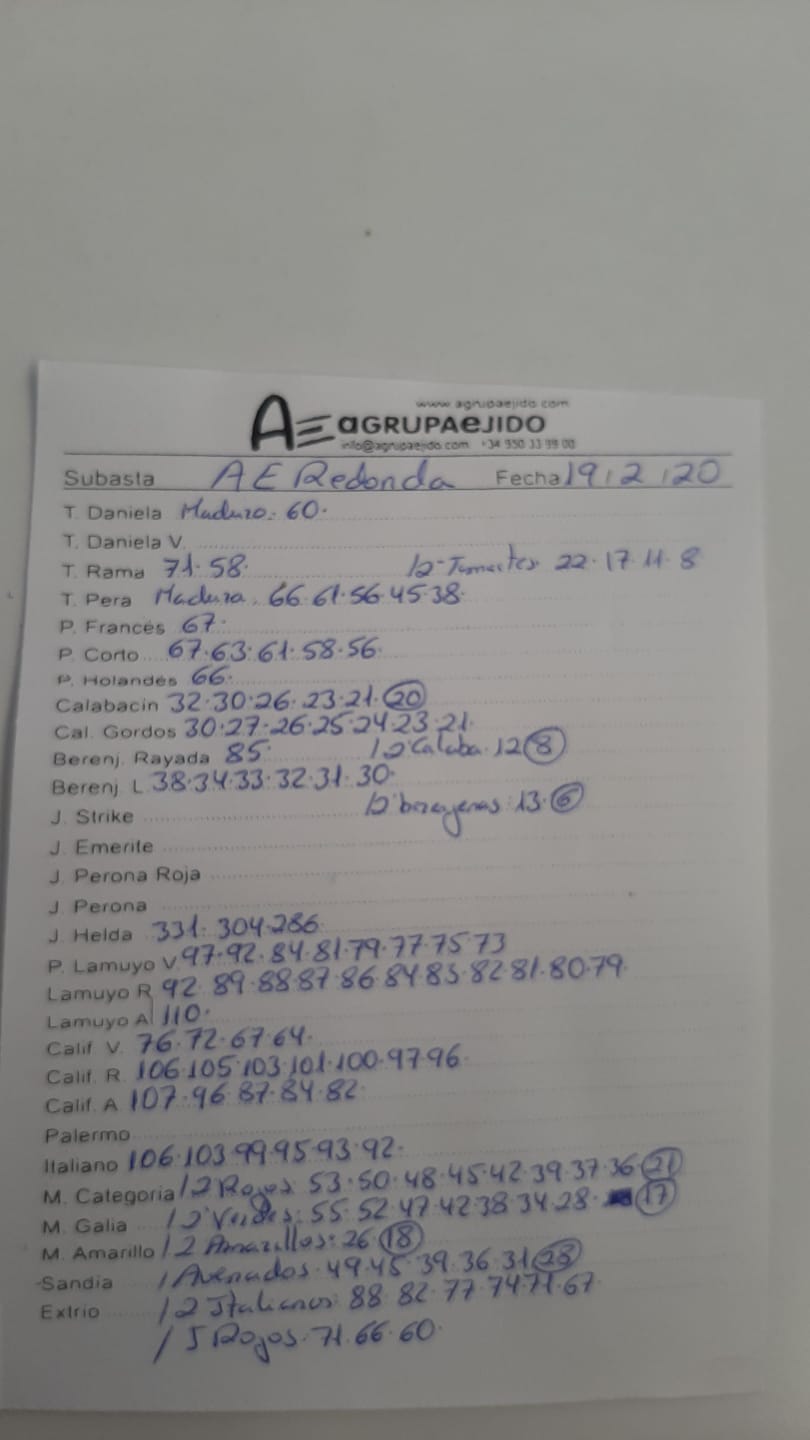 www.agrupaejido.com
AE aGRUPAeJIDO
info@agrupaejido.com +34 950 33 99 00
Subasta AE Redonda Fecha 19/2/20
T. Daniela Maduro: 60.
T. Daniela V.
T. Rama 71.58. /2ª Tomates 22.17.11.8
T. Pera Madura. 66.61.56.45.38.
P. Francés 67.
P. Corto 67.63.61.58.56.
P. Holandés 66.
Calabacin 32.30.26.23.21.20
Cal. Gordos 30.27.26.25.24.23.21.
Berenj. Rayada 85. /2ª Calaba. 12.8
Berenj. L 38.34.33.32.31.30.
J. Strike /2ª berenjenas: 13.6
J. Emerite
J. Perona Roja
J. Perona
J. Helda 331.304.286.
P. Lamuyo V 97.92.84.81.79.77.75.73
Lamuyo R 92.89.88.87.86.84.83.82.81.80.79.
Lamuyo A 110.
Calif. V. 76.72.67.64.
Calif. R. 106.105.103.101.100.97.96.
Calif. A. 107.96.87.84.82.
Palermo
Italiano 106.103.99.95.93.92.
M. Categoria /2 Rojos 53.50.48.45.42.39.37.36.21
M. Galia /2 Verdes: 55.52.47.42.38.34.28.17
M. Amarillo /2 Amarillos: 26.18
Sandia / Asenados.49.45.39.36.31.28
Extrio /2 Italianos: 88.82.77.74.71.67.
/ J Rojos.71.66.60.